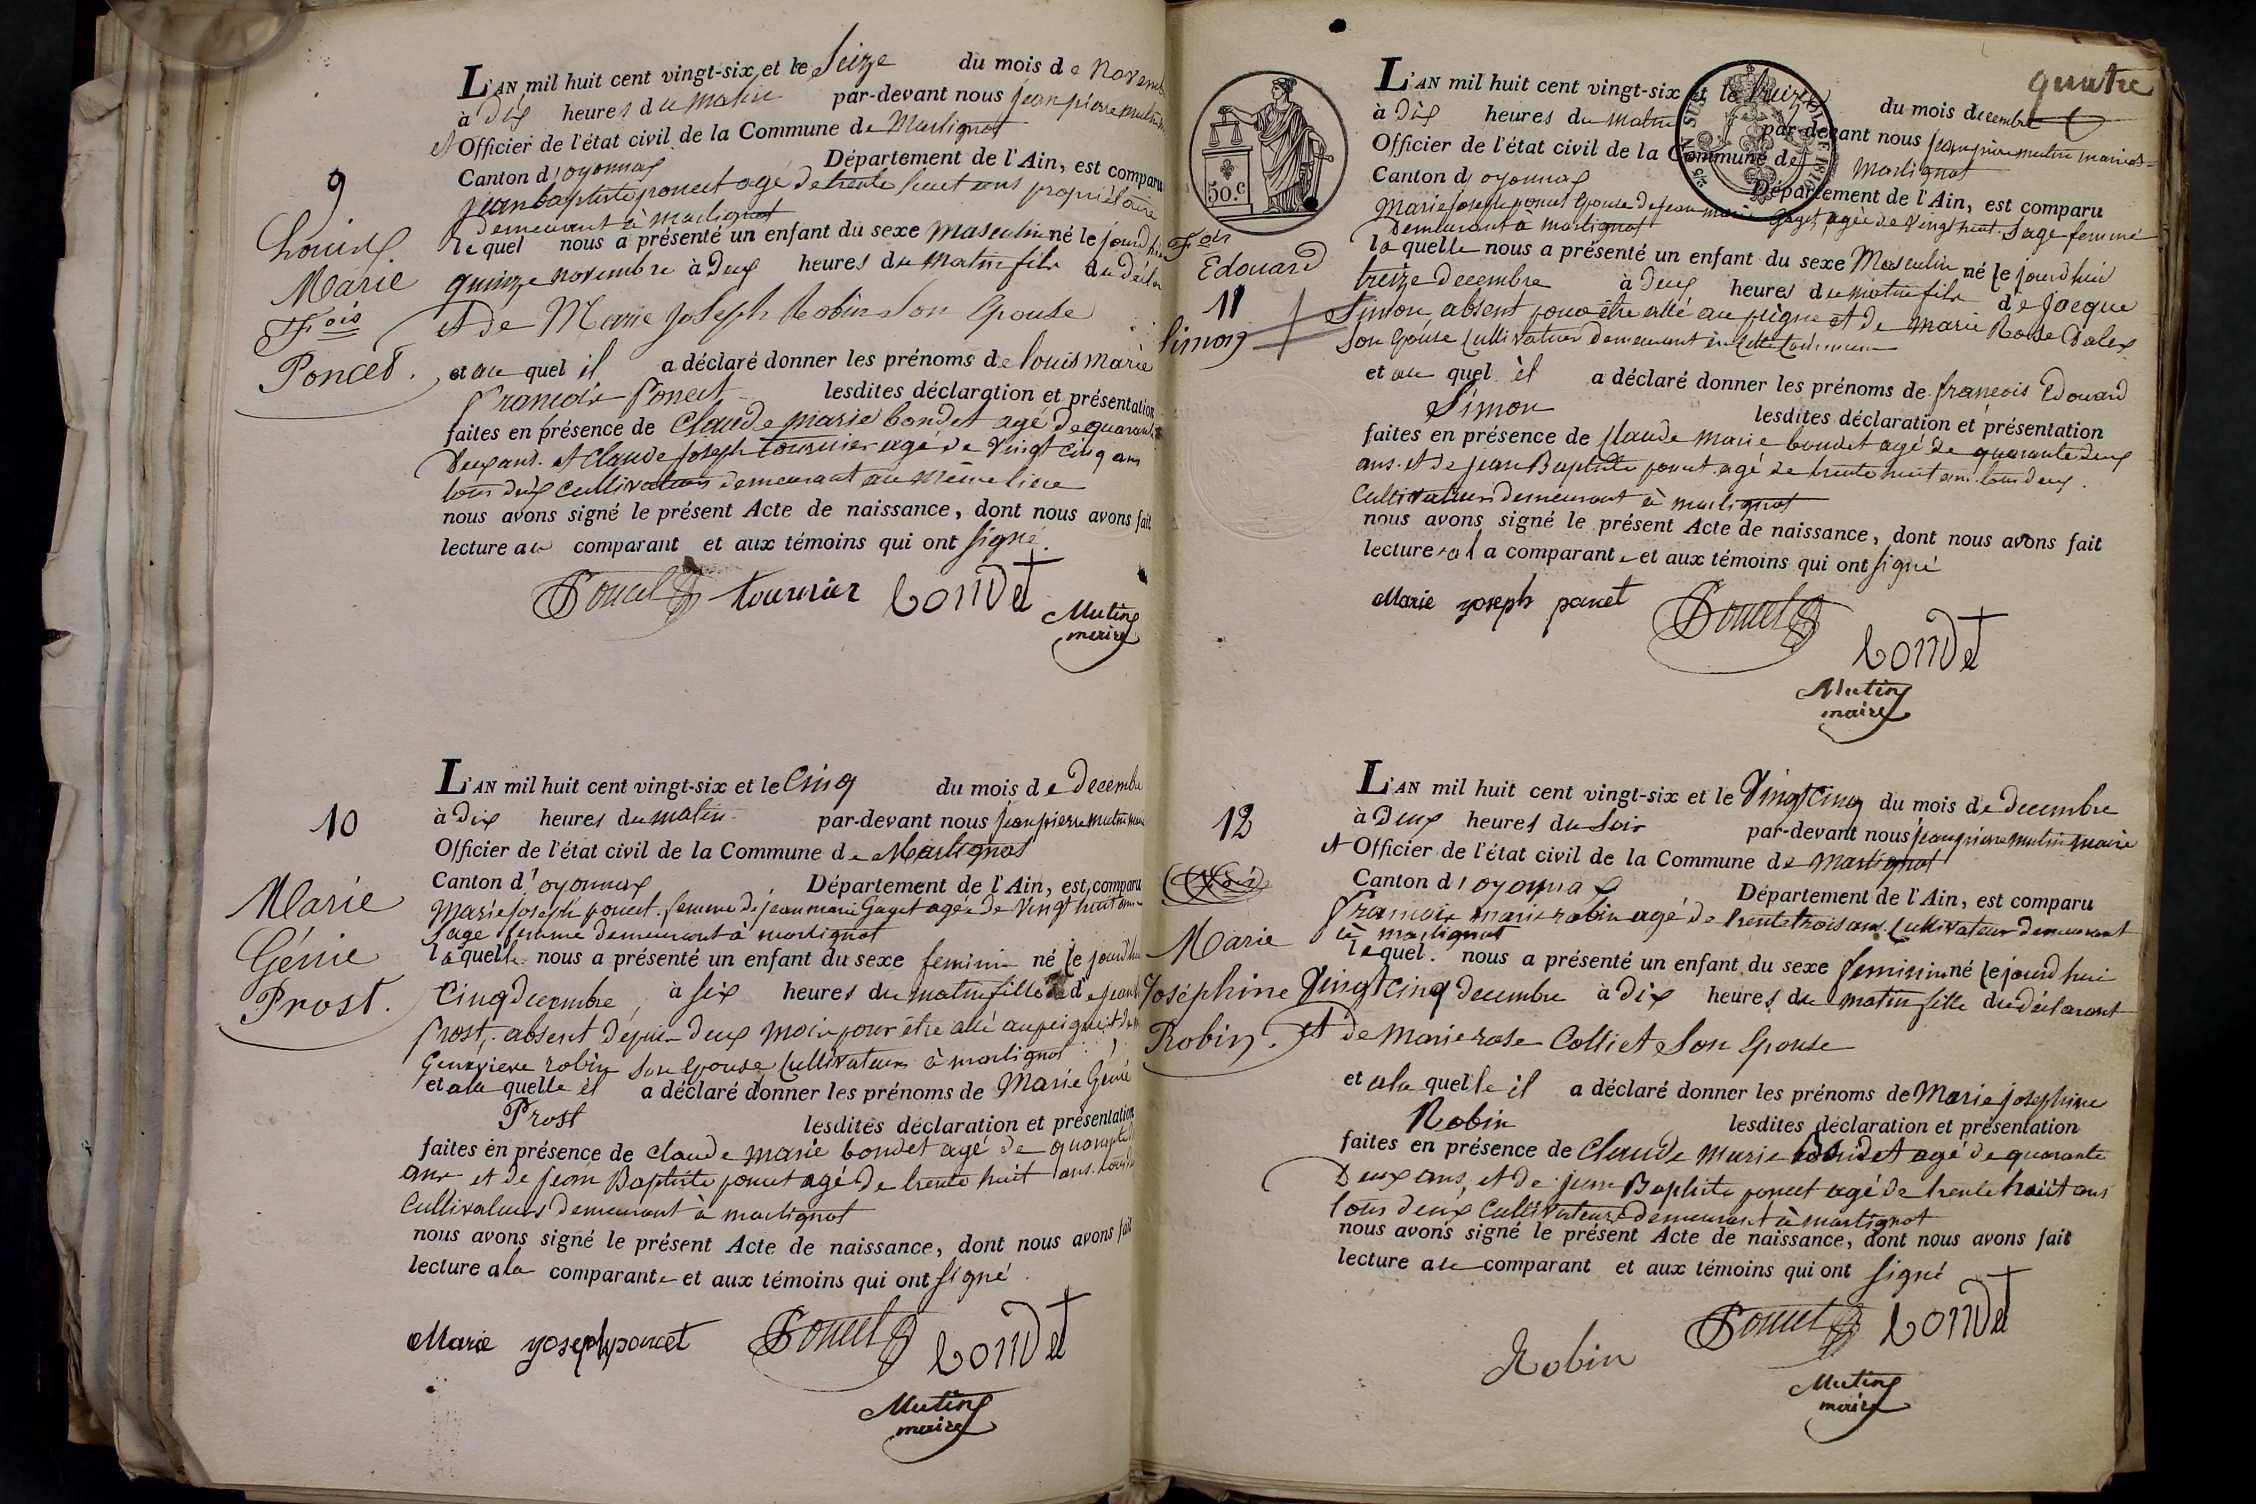 L'AN mil huit cent vingt-six et le Seize du mois de Novemb
à Dix heures du matin par-devant nous jean pierre mutin
et Officier de l'état civil de la Commune de Martignat
Canton d'oyonnax Département de l'Ain, est comparu
jean baptiste poncet agé de trente huit ans propriétaire
demeurant à martignat
lequel nous a présenté un enfant du sexe masculin né le jourdhui
quinze novembre à Deux heures du matin fils du décla
et de Marie joseph Robin Son Epouse
et au quel il a déclaré donner les prénoms de louis marie
francois Poncet lesdites déclaration et présentation
faites en présence de Claude marie bondet agé de quarante
Deux ans. et Claude joseph tournier agé de Vingt cinq ans
tous deux cultivateurs demeurant au même lieu
nous avons signé le présent Acte de naissance, dont nous avons fait
lecture au comparant et aux témoins qui ont signé.
Poncet tournier bondet
Mutin
maire
9
Louis
Marie
Fois
Poncet.
L'AN mil huit cent vingt-six et le Cinq du mois de Decembre
à Dix heures du matin par-devant nous jean pierre mutin maire
Officier de l'état civil de la Commune de Martignat
Canton d'oyonnax Département de l'Ain, est comparu
Marie joseph poncet. femme de jean marie Gaget agée de Vingt huit ans
Sage femme demeurant à martignat
laquelle nous a présenté un enfant du sexe feminin né le jourdhui
Cinq decembre à six heures du matin fille de jean
Prost, absent depuis deux mois pour être allé au peigne et de
Genevieve robin son epouse Cultivateurs à martignat
et a la quelle il a déclaré donner les prénoms de Marie Génie
Prost lesdites déclaration et présentation
faites en présence de claude marie bondet agé de quarante
ans et de jean Baptiste poncet agé de trente huit ans. tous deux
Cultivateurs demeurant à martignat
nous avons signé le présent Acte de naissance, dont nous avons fait
lecture a la comparante et aux témoins qui ont signé.
Marie yoseph poncet Poncet bondet
Mutin
maire
10
Marie
Génie
Prost.
quatre
50.c
L'AN mil huit cent vingt-six et le treize du mois decembre
à Dix heures du matin par-devant nous jean pierre mutin maire et
Officier de l'état civil de la Commune de Martignat
Canton d'oyonnax Département de l'Ain, est comparu
Marie joseph poncet Epouse de jean marie Gaget agée de Vingt huit. Sage femme
Demeurant à martignat
laquelle nous a présenté un enfant du sexe Masculin né le jourdhui
treize decembre à deux heures du matin fils de Jacque
Simon absent pour être allé au peigne et de Marie Rose Dalex
son épouse Cultivateur demeurant en cette Commune
et au quel il a déclaré donner les prénoms de francois Edouard
Simon lesdites déclaration et présentation
faites en présence de Claude marie bondet agé de quarante deux
ans. et de jean Baptiste poncet agé de trente huit ans. tous deux
Cultivateurs demeurant à martignat
nous avons signé le présent Acte de naissance, dont nous avons fait
lecture a la comparante et aux témoins qui ont signé
Marie yoseph poncet Poncet
bondet
Mutin
maire
Fois
Edouard
11
Simon
L'AN mil huit cent vingt-six et le Vingt Cinq du mois de decembre
à Deux heures du Soir par-devant nous jean pierre mutin maire
et Officier de l'état civil de la Commune de Martignat
Canton d'oyonnax Département de l'Ain, est comparu
francois marie robin agé de trente trois ans. Cultivateur demeurant
à martignat
lequel nous a présenté un enfant du sexe feminin né le jourdhui
Vingt Cinq decembre à dix heures du matin fille du déclarant
et de Marie rose Colliet Son Epouse
et a la quelle il a déclaré donner les prénoms de Marie josephine
Robin lesdites déclaration et présentation
faites en présence de Claude marie bondet agé de quarante
Deux ans, et de jean Baptiste poncet agé de trente huit ans
tous deux Cultivateurs demeurant à martignat
nous avons signé le présent Acte de naissance, dont nous avons fait
lecture au comparant et aux témoins qui ont signé
Robin Poncet bondet
Mutin
maire
12
Marie
Joséphine
Robin.